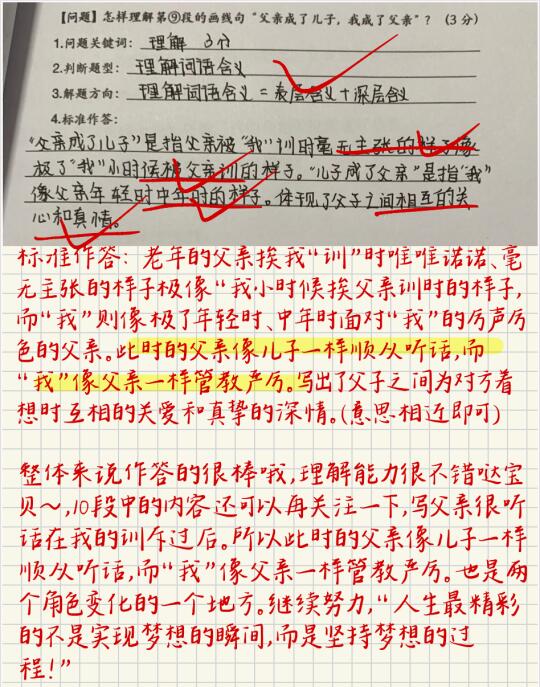 【问题】怎样理解第⑨段的画线句“父亲成了儿子，我成了父亲”？（3分）
1.问题关键词：理解 3分
2.判断题型：理解词语含义
3.解题方向：理解词语含义=表层含义+深层含义
4.标准作答：
“父亲成了儿子”是指父亲被“我”训时毫无主张的样子像
极了“我”小时候被父亲训的样子。“儿子成了父亲”是指“我”
像父亲年轻时中年时的样子。体现了父子之间相互的关
心和真情。
标准作答：老年的父亲挨我“训”时唯唯诺诺、毫
无主张的样子极像“我小时候挨父亲训时的样子，
而“我”则像极了年轻时、中年时面对“我”的厉声厉
色的父亲。此时的父亲像儿子一样顺从听话，而
“我”像父亲一样管教严厉。写出了父子之间为对方着
想时互相的关爱和真挚的深情。(意思相近即可)
整体来说作答的很棒哦，理解能力很不错哒宝
贝~，10段中的内容还可以再关注一下，写父亲很听
话在我的训斥过后。所以此时的父亲像儿子一样
顺从听话，而“我”像父亲一样管教严厉。也是两
个角色变化的一个地方。继续努力，“人生最精彩
的不是实现梦想的瞬间，而是坚持梦想的过
程！”